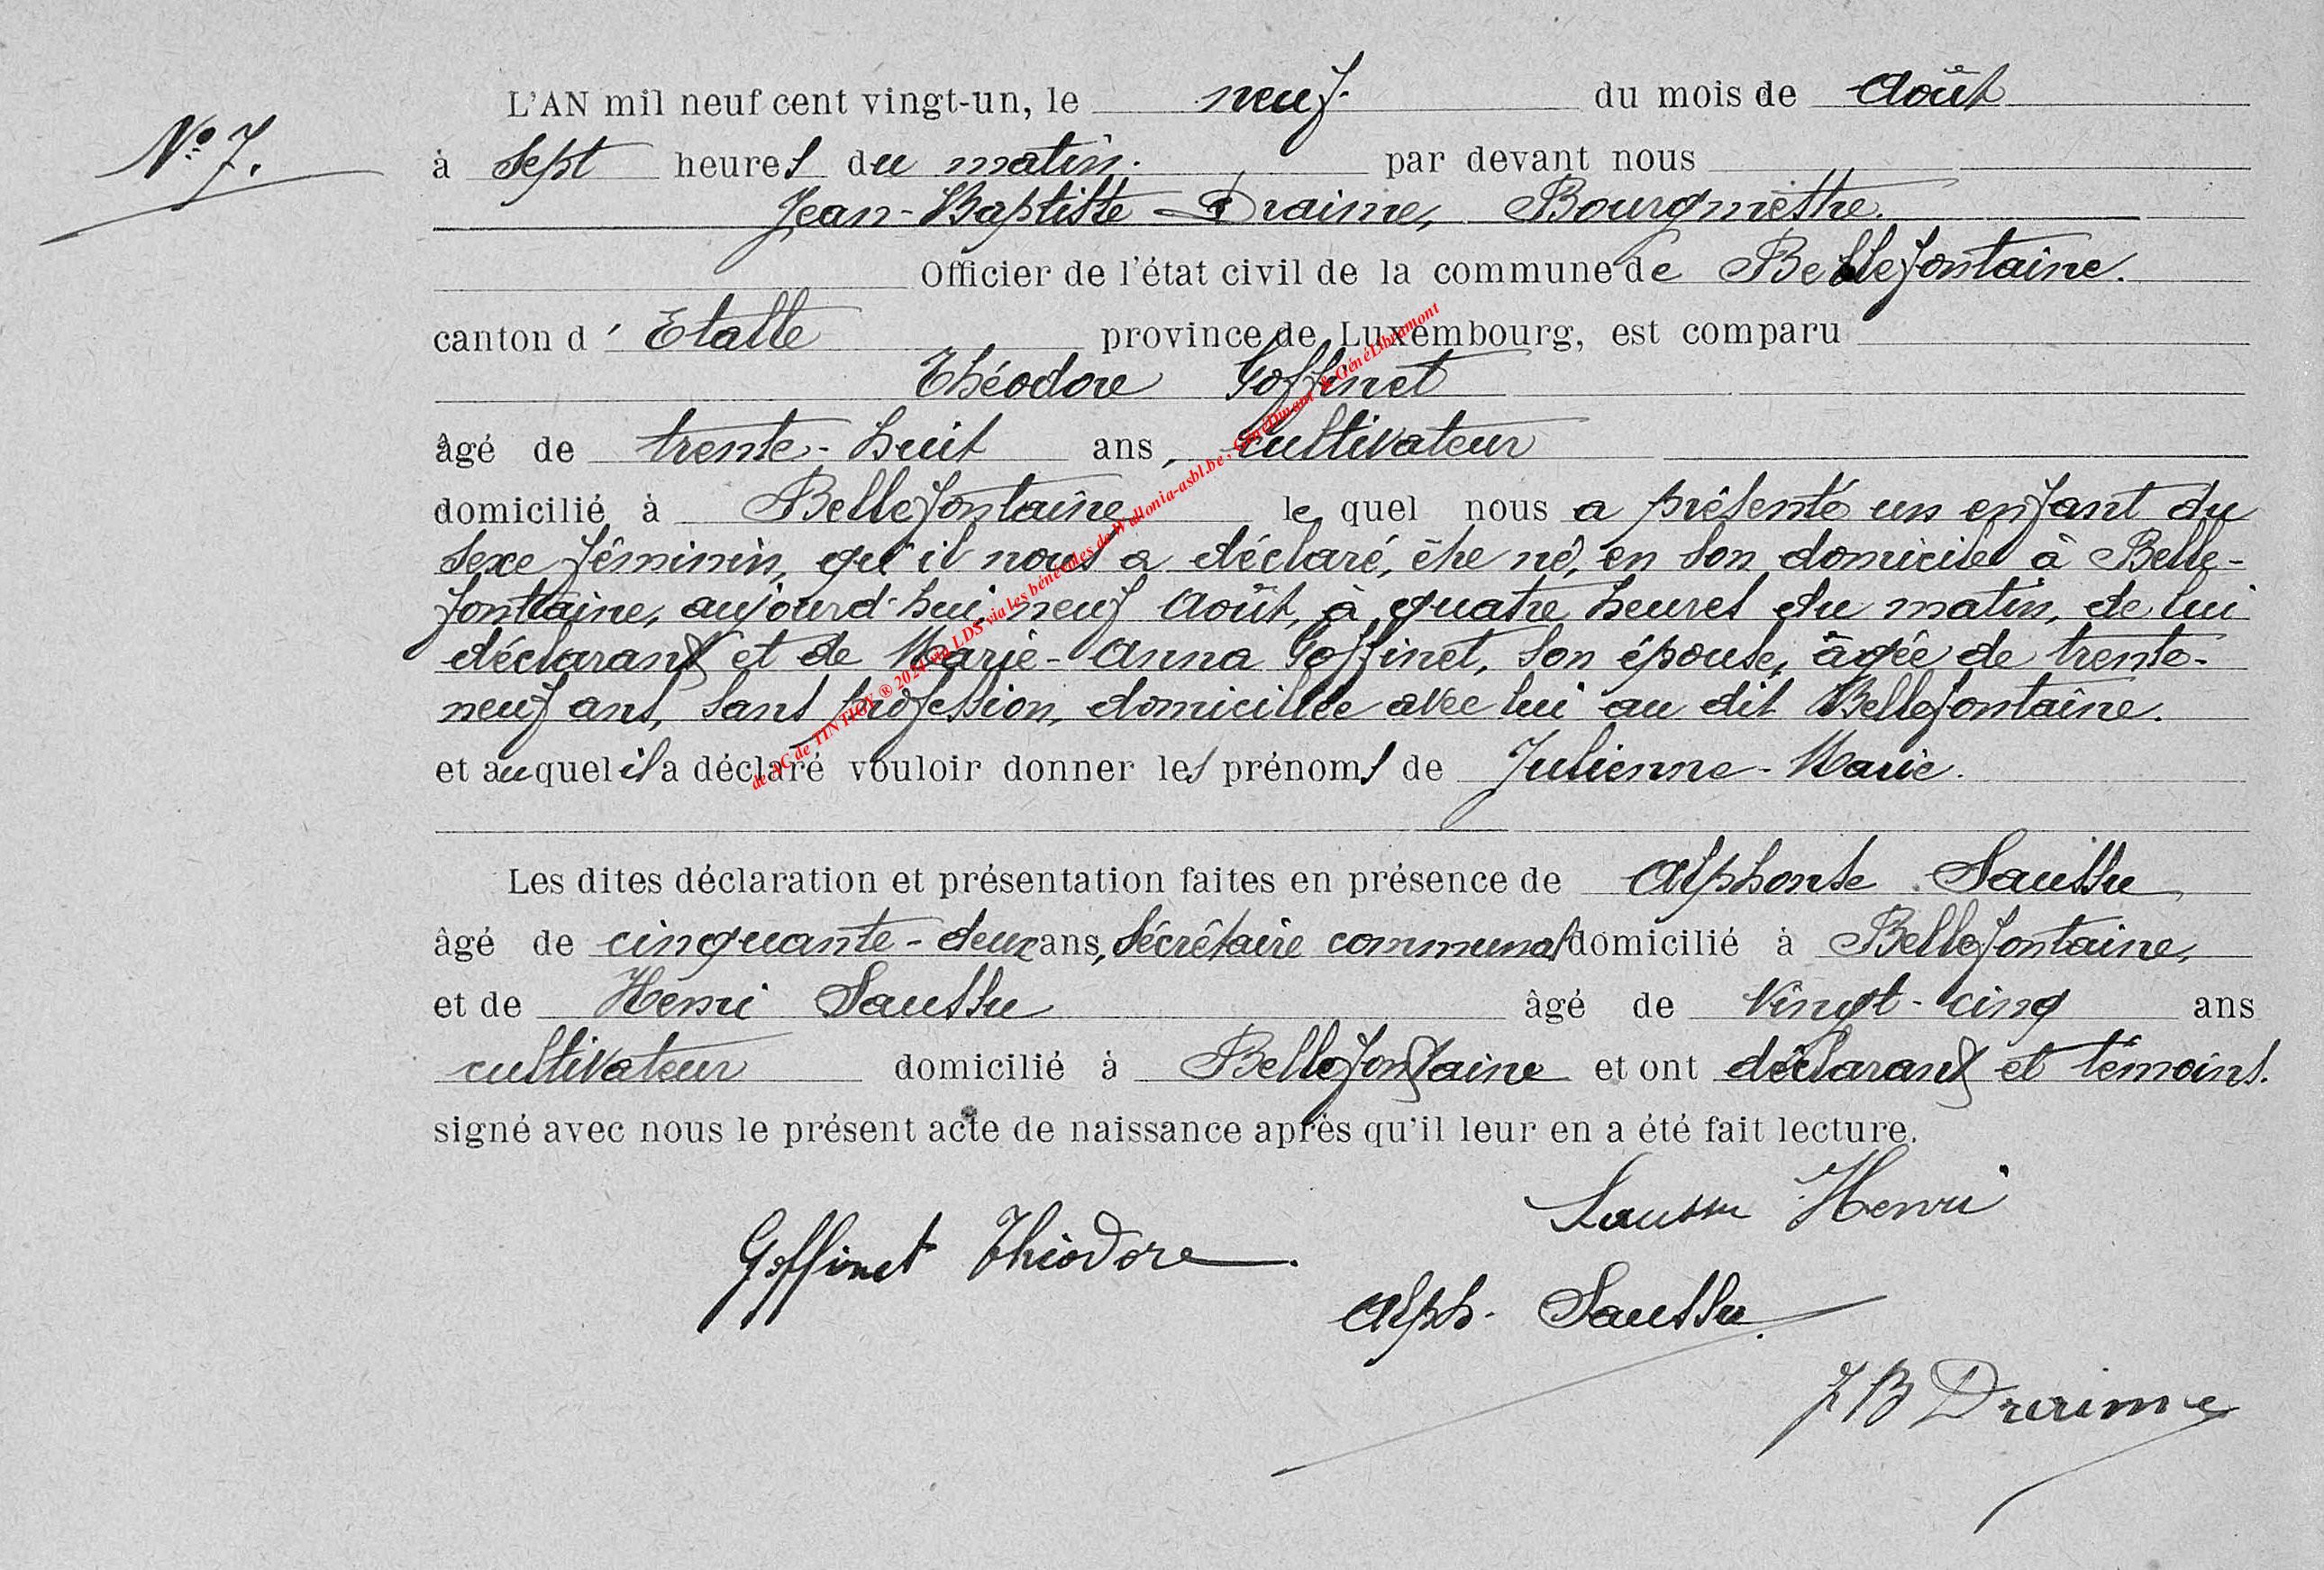 L'AN mil neuf cent vingt-un, le neuf. du mois de Août
N° 7.
à sept heures du matin. par devant nous
Jean-Baptiste Draime, Bourgmestre.
Officier de l'état civil de la commune de Bellefontaine.
canton d' Etalle province de Luxembourg, est comparu
Théodore Goffinet
âgé de trente-huit ans, cultivateur
domicilié à Bellefontaine lequel nous a présenté un enfant du
sexe féminin, qu'il nous a déclaré, être né, en son domicile à Belle-
fontaine, aujourd'hui neuf Août, à quatre heures du matin, de lui
déclarant et de Marie-Anna Goffinet, son épouse, âgée de trente-
neuf ans, sans profession, domiciliée avec lui au dit Bellefontaine.
et auquel il a déclaré vouloir donner les prénoms de Julienne-Marie.
Les dites déclaration et présentation faites en présence de Alphonse Saussu
âgé de cinquante-deux ans, sécrétaire communal domicilié à Bellefontaine,
et de Henri Saussu âgé de vingt-cinq ans
cultivateur domicilié à Bellefontaine et ont déclarant et témoins.
signé avec nous le présent acte de naissance après qu'il leur en a été fait lecture.
Saussu Henri
Goffinet Théodore
Alph. Saussu
J B Draime
de AC de TINTIGNY ® 2024 via LDS via les bénévoles de Wallonia-asbl.be, GénéDinant & GénéLibramont